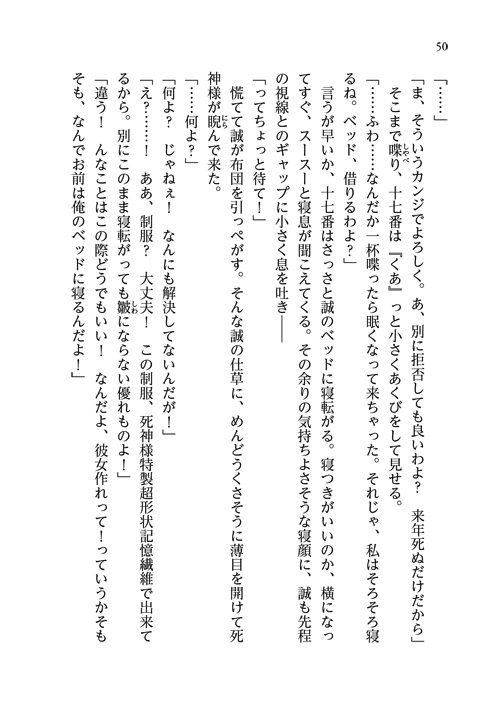 50
「……」
「ま、そういうカンジでよろしく。あ、別に拒否しても良いわよ?　来年死ぬだけだから」
　そこまで喋り、十七番は『くあ』っと小さくあくびをして見せる。
「……ふわ……なんだか一杯喋ったら眠くなって来ちゃった。それじゃ、私はそろそろ寝
るね。ベッド、借りるわよ?」
　言うが早いか、十七番はさっさと誠のベッドに寝転がる。寝つきがいいのか、横になっ
てすぐ、スースーと寝息が聞こえてくる。その余りの気持ちよさそうな寝顔に、誠も先程
の視線とのギャップに小さく息を吐き――
「ってちょっと待て!」
　慌てて誠が布団を引っぺがす。そんな誠の仕草に、めんどうくさそうに薄目を開けて死
神様が睨んで来た。
「……何よ?」
「何よ?　じゃねぇ!　なんにも解決してないんだが!」
「え?……!　ああ、制服?　大丈夫!　この制服、死神様特製超形状記憶繊維で出来て
るから。別にこのまま寝転がっても皺にならない優れものよ!」
「違う!　んなことはこの際どうでもいい!　なんだよ、彼女作れって!っていうかそも
そも、なんでお前は俺のベッドに寝るんだよ!」